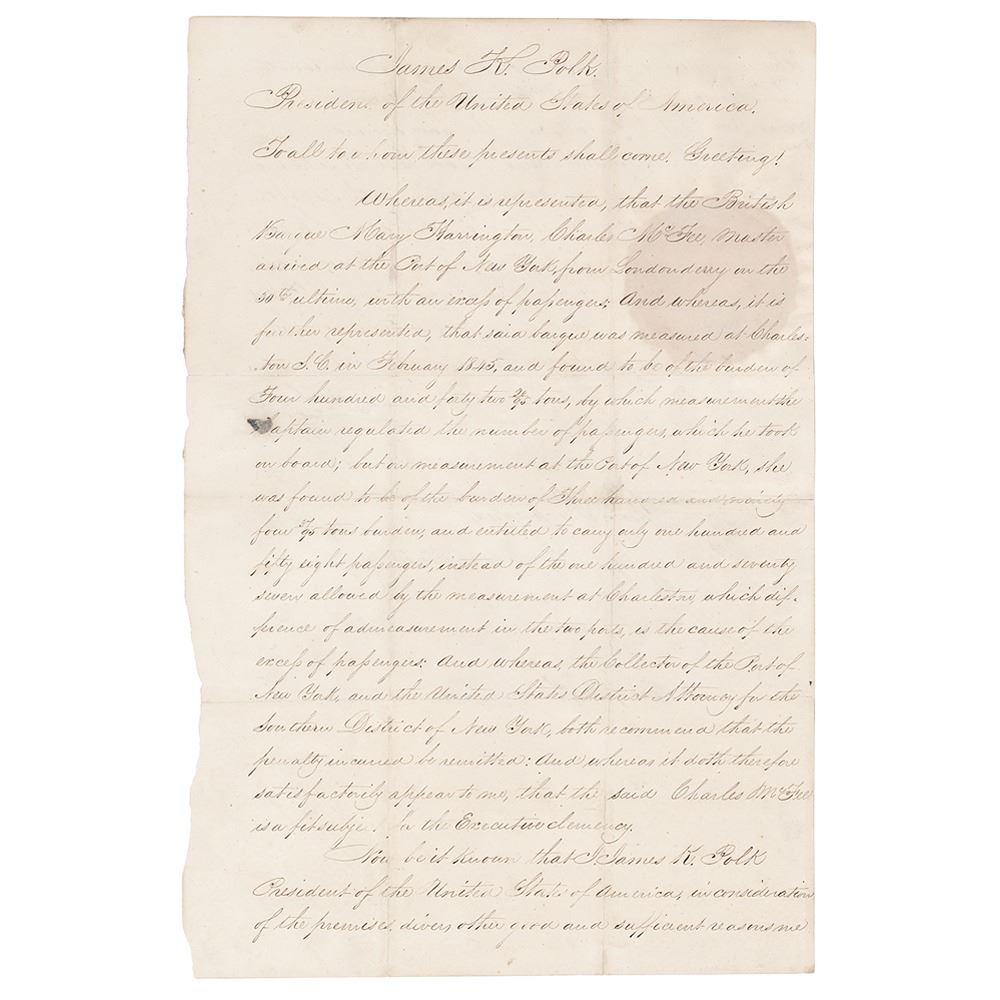 James K. Polk.
President of the United States of America.
To all to whom these presents shall come, Greeting!
Whereas, it is represented, that the British
Barque Mary Harrington, Charles McFee, master
arrived at the Port of New York, from Londonderry on the
30th ultimo, with an excess of passengers; And whereas, it is
further represented, that said barque was measured at Charles=
ton S.C. in February 1845, and found to be of the burden of
Four hundred and forty two /95 tons, by which measurement the
Captain regulated the number of passengers, which he took
on board; but on measurement at the Port of New York, she
was found to be of the burden of Three hundred and ninety
four /95 tons burden, and entitled to carry only one hundred and
fifty eight passengers, instead of the one hundred and seventy
seven allowed by the measurement at Charleston, which dif-
ference of admeasurement in the two ports, is the cause of the
excess of passengers: And whereas, the Collector of the Port of
New York, and the United States District Attorney for the
Southern District of New York, both recommend that the
penalty incurred be remitted: And whereas it doth therefore
satisfactorily appear to me, that the said Charles McFee
is a fit subject for the Executive clemency.
Now be it known that I, James K. Polk
President of the United States of America, in consideration
of the premises, divers other good and sufficient reasons me